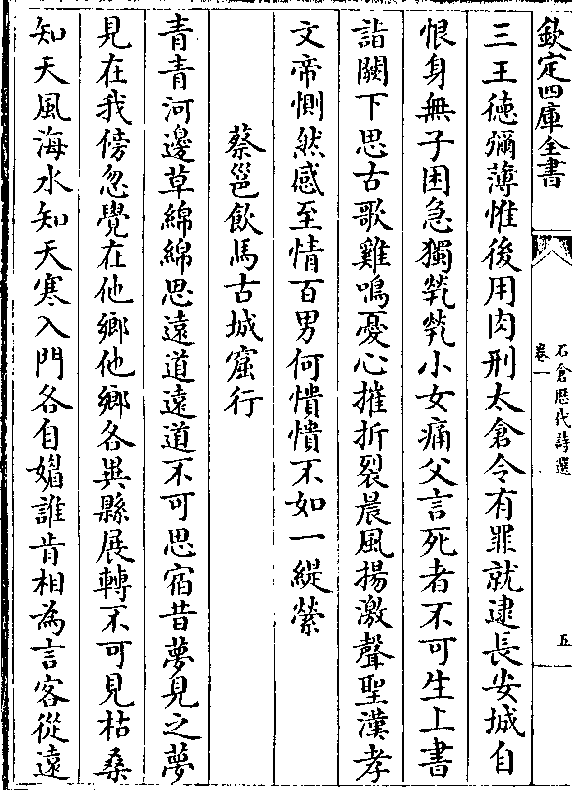 欽定四庫全書
石倉歷代詩選
卷一
五
三王徳彌薄惟後用肉刑太倉令有罪就逮長安城自
恨身無子困急獨煢煢小女痛父言死者不可生上書
詣闕下思古歌雞鳴憂心摧折裂晨風揚激聲聖漢孝
文帝惻然感至情百男何憒憒不如一緹縈
蔡邕飲馬古城窟行
青青河邊草綿綿思遠道遠道不可思宿昔夢見之夢
見在我傍忽覺在他鄉他鄉各異縣展轉不可見枯桑
知天風海水知天寒入門各自媚誰肯相為言客從遠